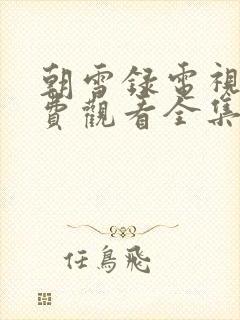 朝雪録電視
費觀看全集
任鳥飛